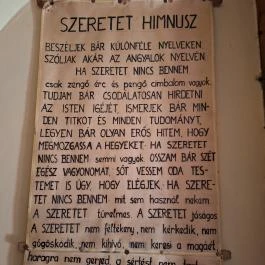 SZERETET HIMNUSZ
BESZÉLJEK BÁR KÜLÖNFÉLE NYELVEKEN,
SZÓLJAK AKÁR AZ ANGYALOK NYELVÉN,
HA SZERETET NINCS BENNEM
csak zengő érc és pengő cimbalom vagyok.
TUDJAM BÁR CSODÁLATOSAN HIRDETNI
AZ ISTEN IGÉJÉT, ISMERJEK BÁR MIN-
DEN TITKOT ÉS MINDEN TUDOMÁNYT,
LEGYEN BÁR OLYAN ERŐS HITEM, HOGY
MEGMOZGASSA A HEGYEKET. HA SZERETET
NINCS BENNEM semmi vagyok. OSSZAM BÁR SZÉT
EGÉSZ VAGYONOMAT, SŐT VESSEM ODA TES-
TEMET IS ÚGY, HOGY ELÉGJEK, HA SZERE-
TET NINCS BENNEM mit sem használ nekem.
A SZERETET türelmes. A SZERETET jóságos
A SZERETET nem féltékeny, nem kérkedik, nem
gőgösködik, nem kihívó, nem keresi a magáét,
haragra nem gerjed a sértést nem